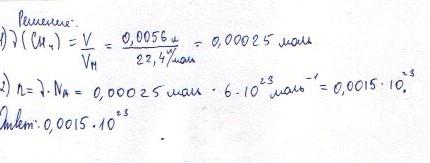 Решение:
1) ν(CH₄) = V/Vₘ = 0,0056 л / 22,4 л/моль = 0,00025 моль
2) n = ν · Nₐ = 0,00025 моль · 6 · 10²³ моль⁻¹ = 0,0015 · 10²³.
Ответ: 0,0015 · 10²³